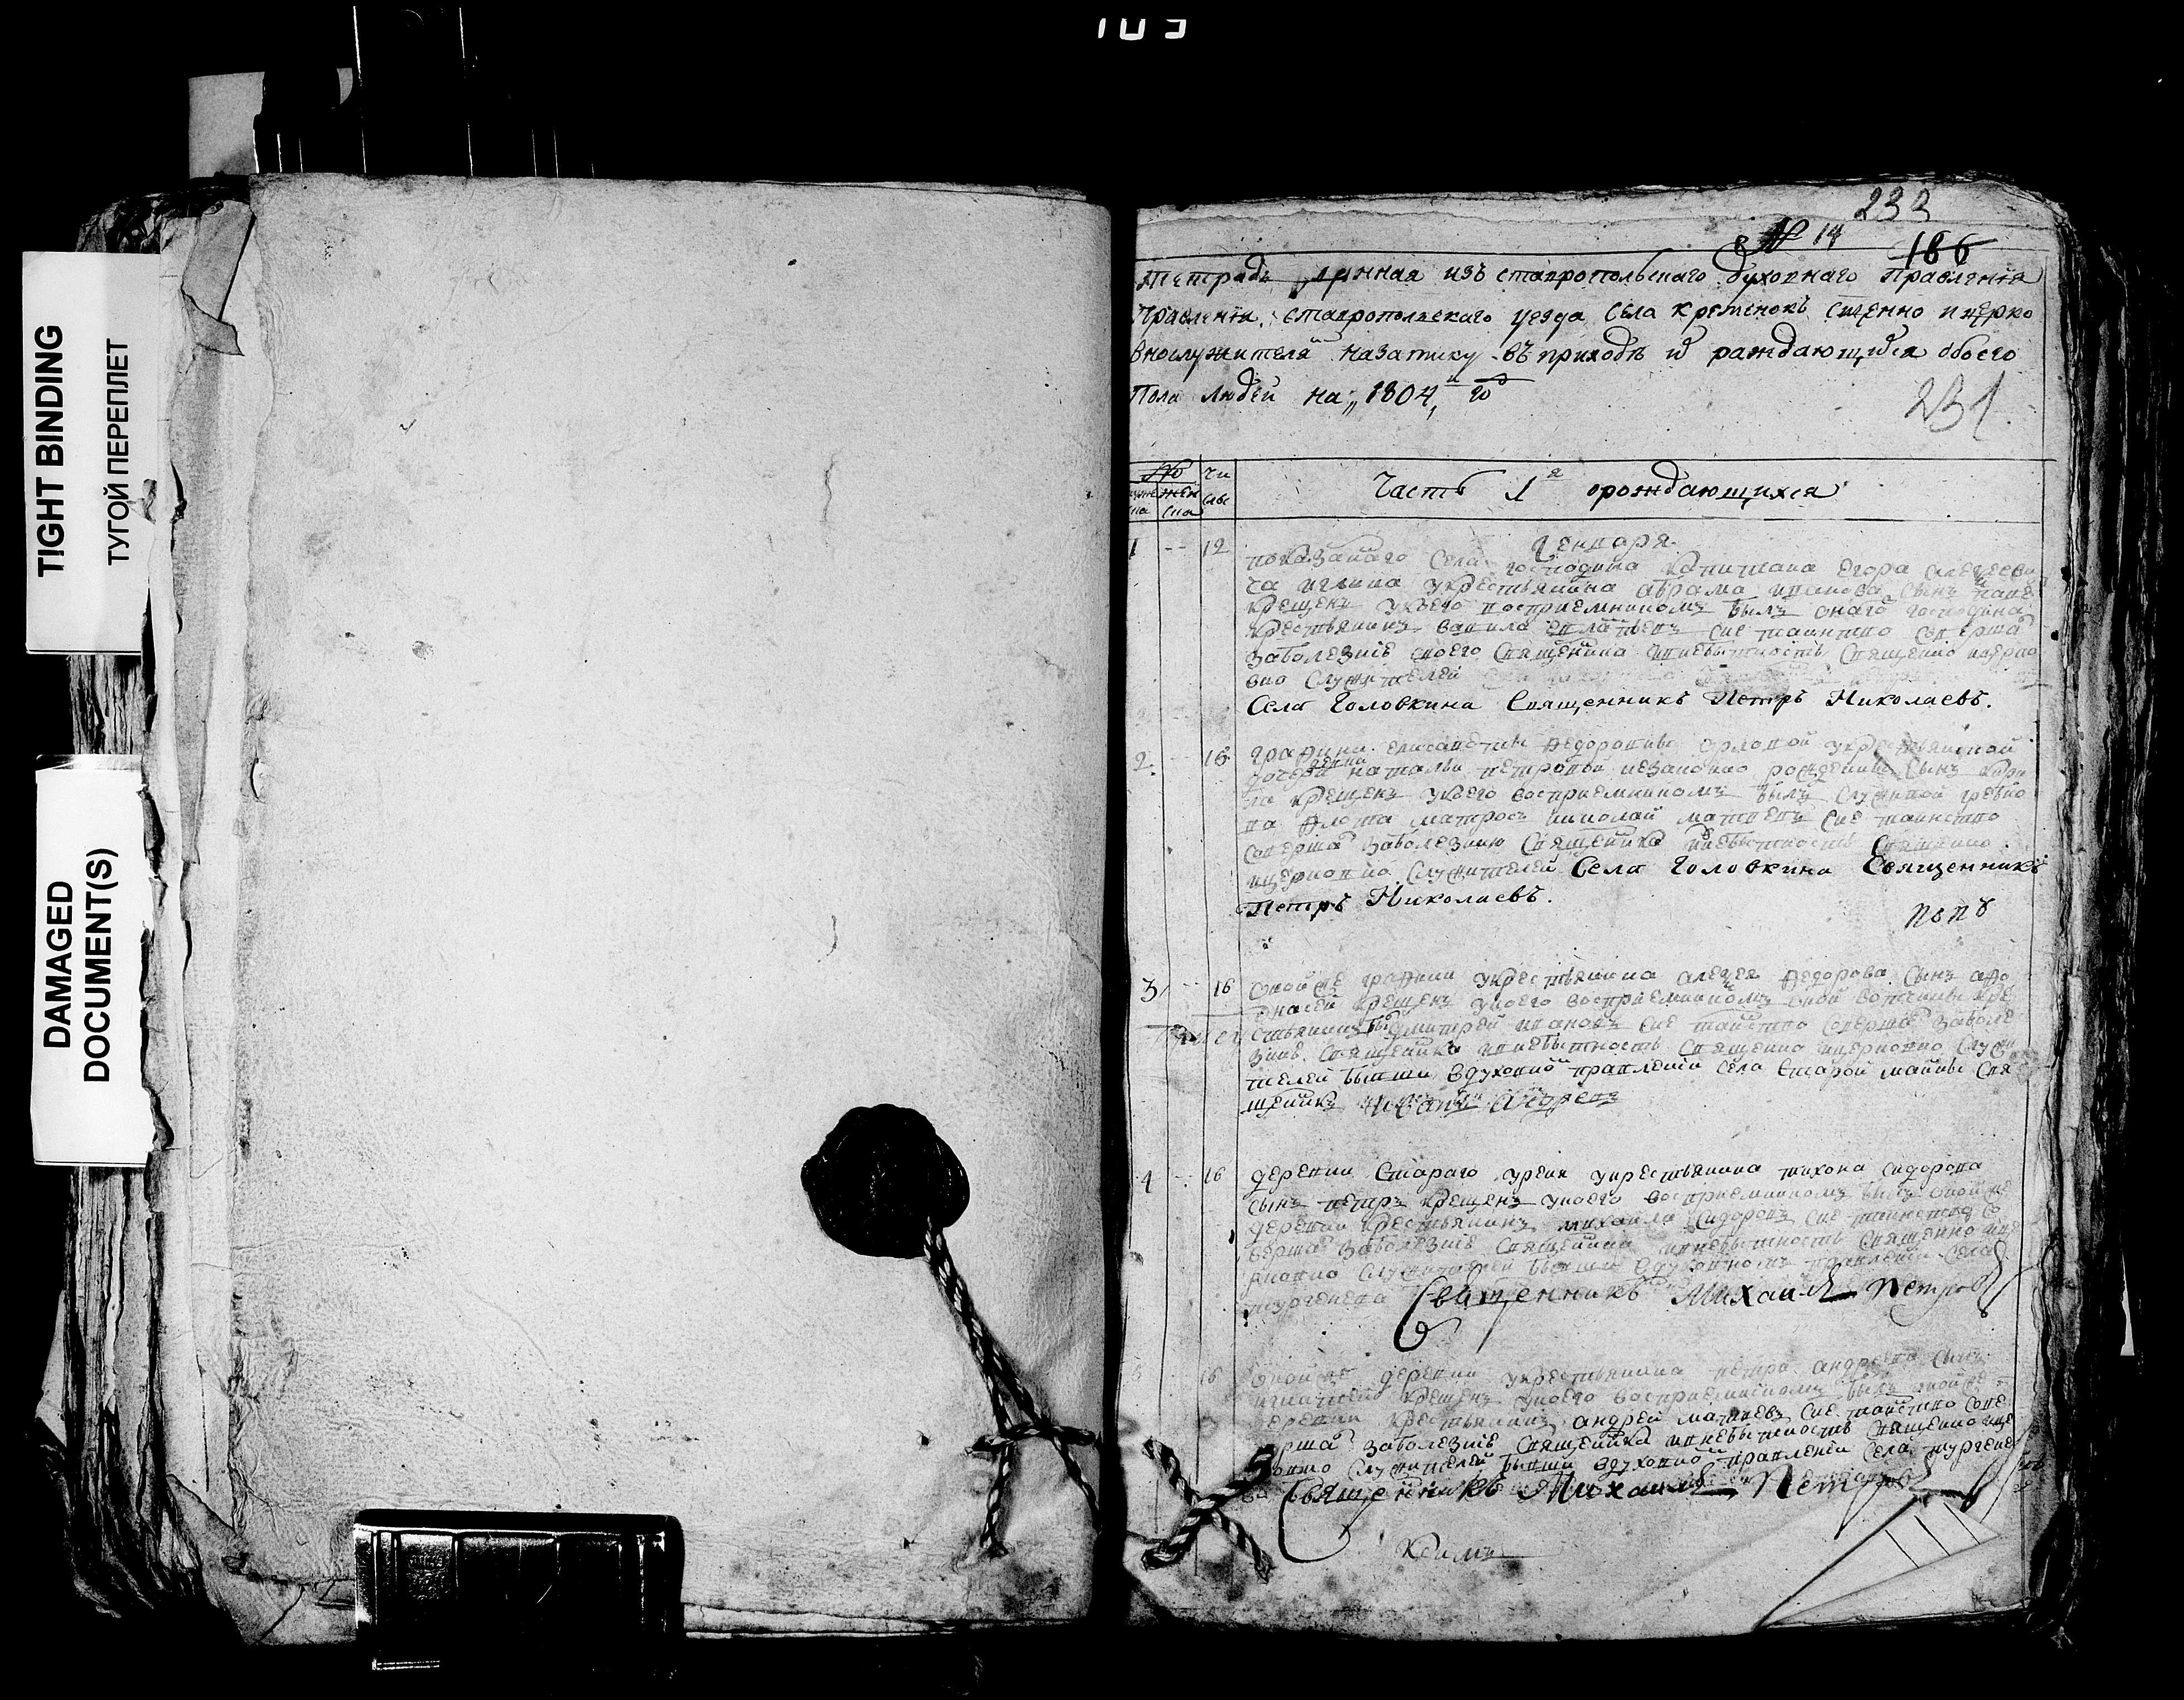 103
TIGHT BINDING
ТУГОЙ ПЕРЕПЛЕТ
DAMAGED
DOCUMENT(S)
233
№ 14
186
Тетрадь данная изъ ставропольскаго духовнаго Правления
Правления ставропольскаго уезда села кременокъ сщенно ицерко
внослужителя назаписку въ приходѣ ѡ раждающихся обоего
Пола людей на 1804 го
231
№ чи
муже жен сло
ска ска
Часть 1я орождающихся
Генваря
1 -- 12 показанаго села господина капитана Егора алеѯееви
ча укрестьянина абрама иванова сынъ
крещенъ укоего восприемникомъ былъ онаго господина
крестьянинъ вавила сие таинство соверша
заболезние своего священника инебытность священно церко
вно служителей
Села Головкина Священникъ Петръ Николаевъ.
2 16 графини елисаветы ѳедоровны орловой укрестьянской
дочери натальи петровой незаконно рожденны сынъ кири
ла крещенъ укоего восприемникомъ былъ служивой гребно
ва флота матросъ николай матвевъ сие таинство
соверша заболезнию священника инебытность священно
ицерковно служителей Села Головкина Священникъ
Петръ Николаевъ.
попъ
3 -- 16 оной же графини укрестьянина алеѯея ѳедорова сынъ аѳо
насей крещенъ укоего восприемникомъ оной вотчины кре
стьянинъ бы дмитрей ивановъ сие таинство соверша заболе
зние священника инебытность священно ицерковно служи
телей бытии вдуховно правлении села старой майны свя
щенникъ Иванъ Андреевъ
4 -- 16 деревни Стараго урени укрестьянина тихона сидорова
сынъ петръ крещенъ укоего восприемникомъ былъ оной же
деревни крестьянинъ михаила сидоровъ сие таинство со
верша заболезние священника инебытность священно ице
рковно служителей бытии вдуховномъ правлении села
тургенева Священникъ Михаилъ Петровъ
5 16 оной же деревни укрестьянина петра андреева сынъ
игнатей крещенъ укоего восприемникомъ былъ оной же
деревни крестьянинъ андрей матвевъ сие таинство сове
рша заболезние священника инебытность священно ице
рковно служителей бытии вдуховно правлении села тургене
ва Священникъ Михаилъ Петровъ